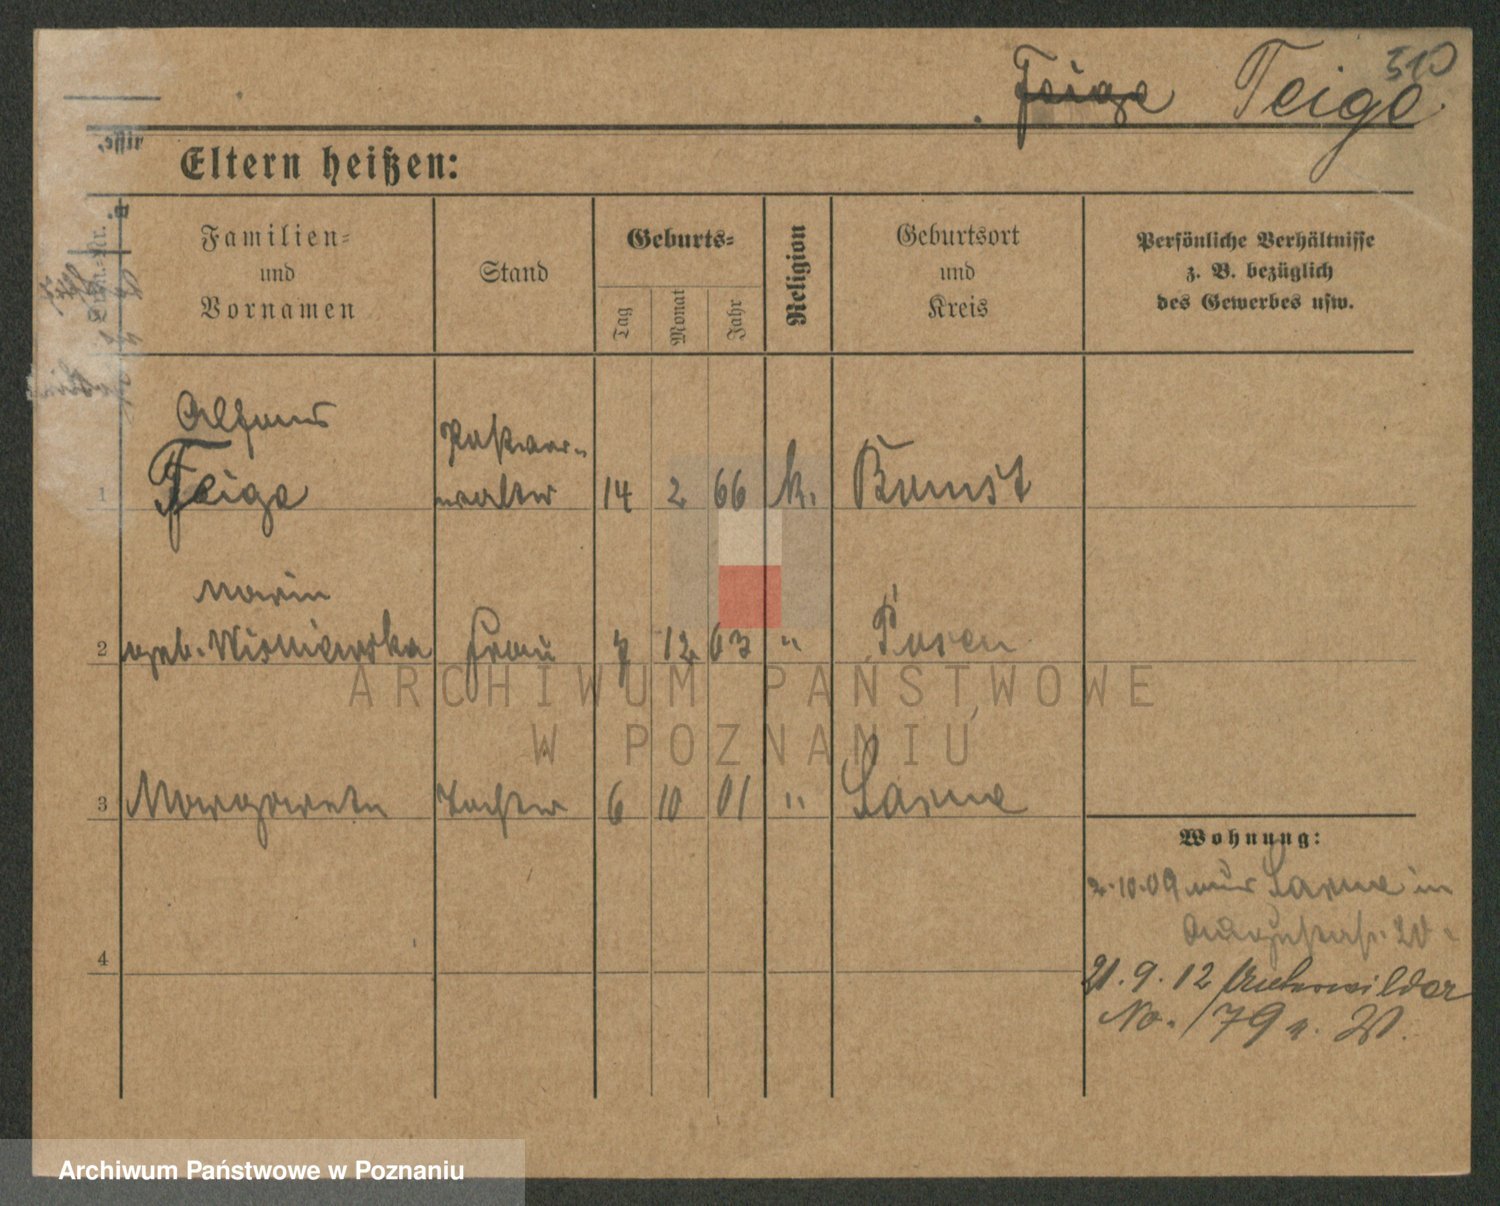 510
Feige Teige
Eltern heißen:
Familien-
und
Vornamen
Stand
Geburts-
Tag
Monat
Jahr
Religion
Geburtsort
und
Kreis
Persönliche Verhältnisse
z. B. bezüglich
des Gewerbes usw.
Alfons
Postver-
1 Feige walter 14 2 66 k. Bomst
Maria
2 geb. Wisniewska Frau 7 12 63 " Posen
3 Margarete Tochter 6 10 01 " Sarne
Wohnung:
2.10.09 aus Sarne in
4
21.9.12
No. 179 n. W.
ARCHIWUM PAŃSTWOWE
W POZNANIU
Archiwum Państwowe w Poznaniu